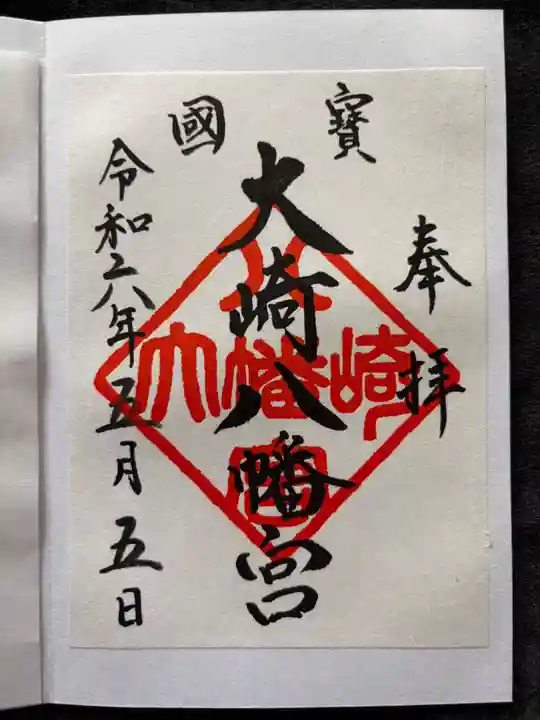 國寶
奉拝
大崎八幡宮
令和六年五月五日
大崎八幡宮